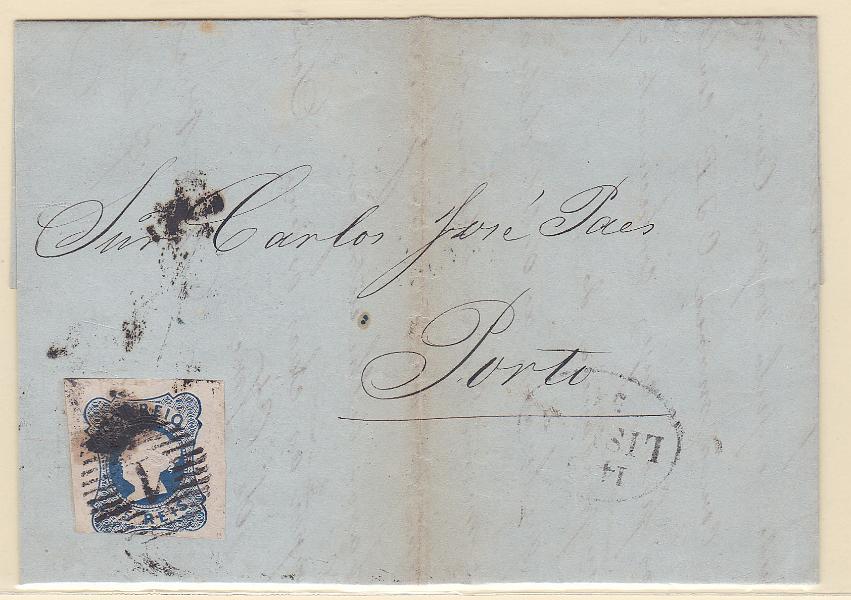 Snr Carlos José Paes
Porto
CORREIO
1
REIS
14